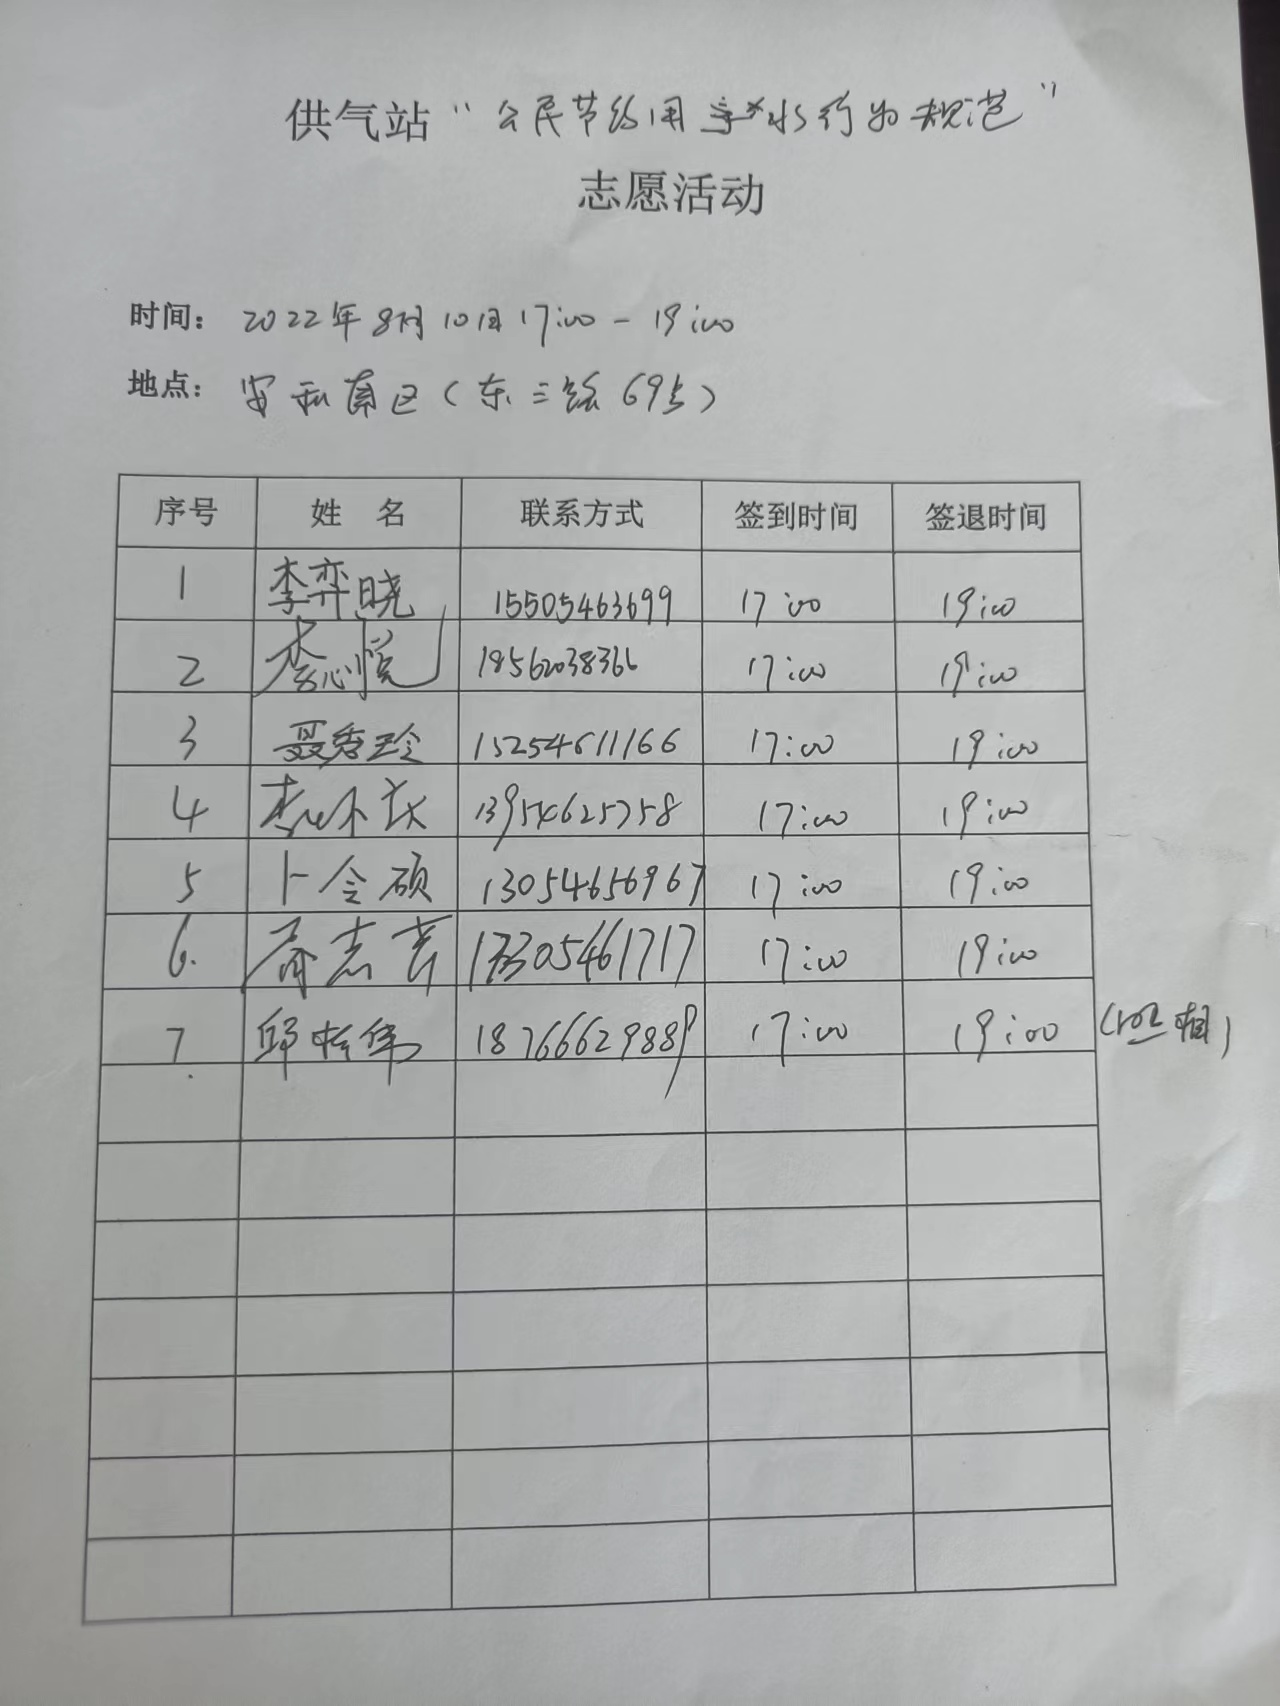 供气站“公民节约用水行为规范”
志愿活动
时间: 2022年8月10日17:00-19:00
地点: 安和南区(东三路69号)
序号 姓名 联系方式 签到时间 签退时间
1 李弈晓 15505463699 17:00 19:00
2 李心悦 18562038366 17:00 19:00
3 聂秀玲 15254611166 17:00 19:00
4 13954625758 17:00 19:00
5 卜令硕 13054656967 17:00 19:00
6. 志 13305461717 17:00 19:00
7 邱 伟 18766629889 17:00 19:00